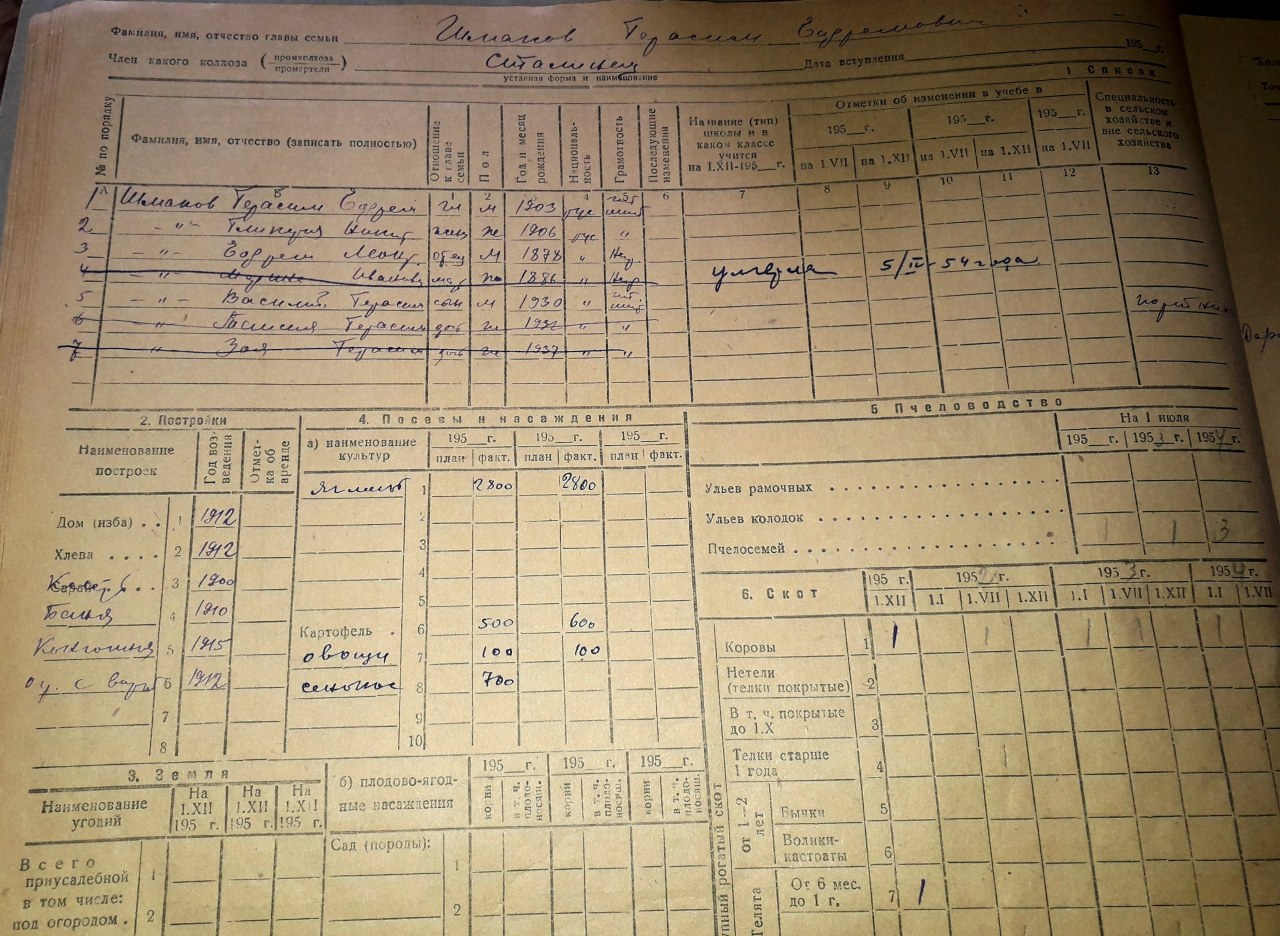 Фамилия, имя, отчество главы семьи Шмаков Герасим Ефремович
195__г.
Член какого колхоза (промколхоза промартели) Сталинец Дата вступления
уставная форма и наименование
1 Список
№ по порядку
Фамилия, имя, отчество (записать полностью)
Отношение к главе семьи
Пол
Год и месяц рождения
Националь-ность
Грамотность
Последующие изменения
Название (тип) школы и в каком классе учится на 1.XII-195__г.
Отметки об изменении в учебе в
195__г. 195__г. 195__г.
на 1.VII на 1.XII на 1.VII на 1.XII на 1.VII
Специальность в сельском хозяйстве и вне сельского хозяйства
А Б 1 2 3 4 5 6 7 8 9 10 11 12 13
1 Шмаков Герасим Ефрем гл м 1903 рус
2 -"- жен ж 1906 рус "
3 -"- Ефрем отец м 1878 " Негр
4 -"- Иванов мать ж 1886 " Негр умерла 5/IV-54 года
5 -"- Василий Герасим сын м 1930 "
6 -"- Таисия Герасим дочь ж 1932 " "
7 -"- Зоя Герасим дочь ж 1937 " "
2. Постройки
Наименование построек
Год воз-ведения
Отмет-ка об аренде
Дом (изба) . . 1 1912
Хлева . . . . 2 1912
Сараи . . 3 1900
Баня 4 1910
5 1915
6 1912
7
8
4. Посевы и насаждения
а) наименование культур
195__г. 195__г. 195__г.
план факт. план факт. план факт.
ячмень 1 2800 2800
2
3
4
5
Картофель . 6 500 600
овощи 7 100 100
сенокос 8 700
9
10
5 Пчеловодство
На 1 июля
195__г. 1953 г. 1954 г.
Ульев рамочных
Ульев колодок
Пчелосемей 1 1 3
6. Скот
195 г. 1952 г. 1953 г. 1954 г.
1.XII 1.I 1.VII 1.XII 1.I 1.VII 1.XII 1.I 1.VII
Коровы 1 1 1 1 1 1 1
Нетели (телки покрытые) 2
В т. ч. покрытые до 1.X 3
Телки старше 1 года 4 1
от 1—2 лет
Бычки 5
Волики-кастраты 6
Телята
От 6 мес. до 1 г. 7 1
рогатый скот
3. Земля
Наименование угодий
На 1.XII 195 г.
На 1.XII 195 г.
На 1.XII 195 г.
Всего приусадебной 1
в том числе:
под огородом . 2
б) плодово-ягод-ные насаждения
195__г. 195__г. 195__г.
корни
в т. ч. плодо-носящ.
корни
в т. ч. плодо-носящ.
корни
в т. ч. плодо-носящ.
Сад (породы):
1
2